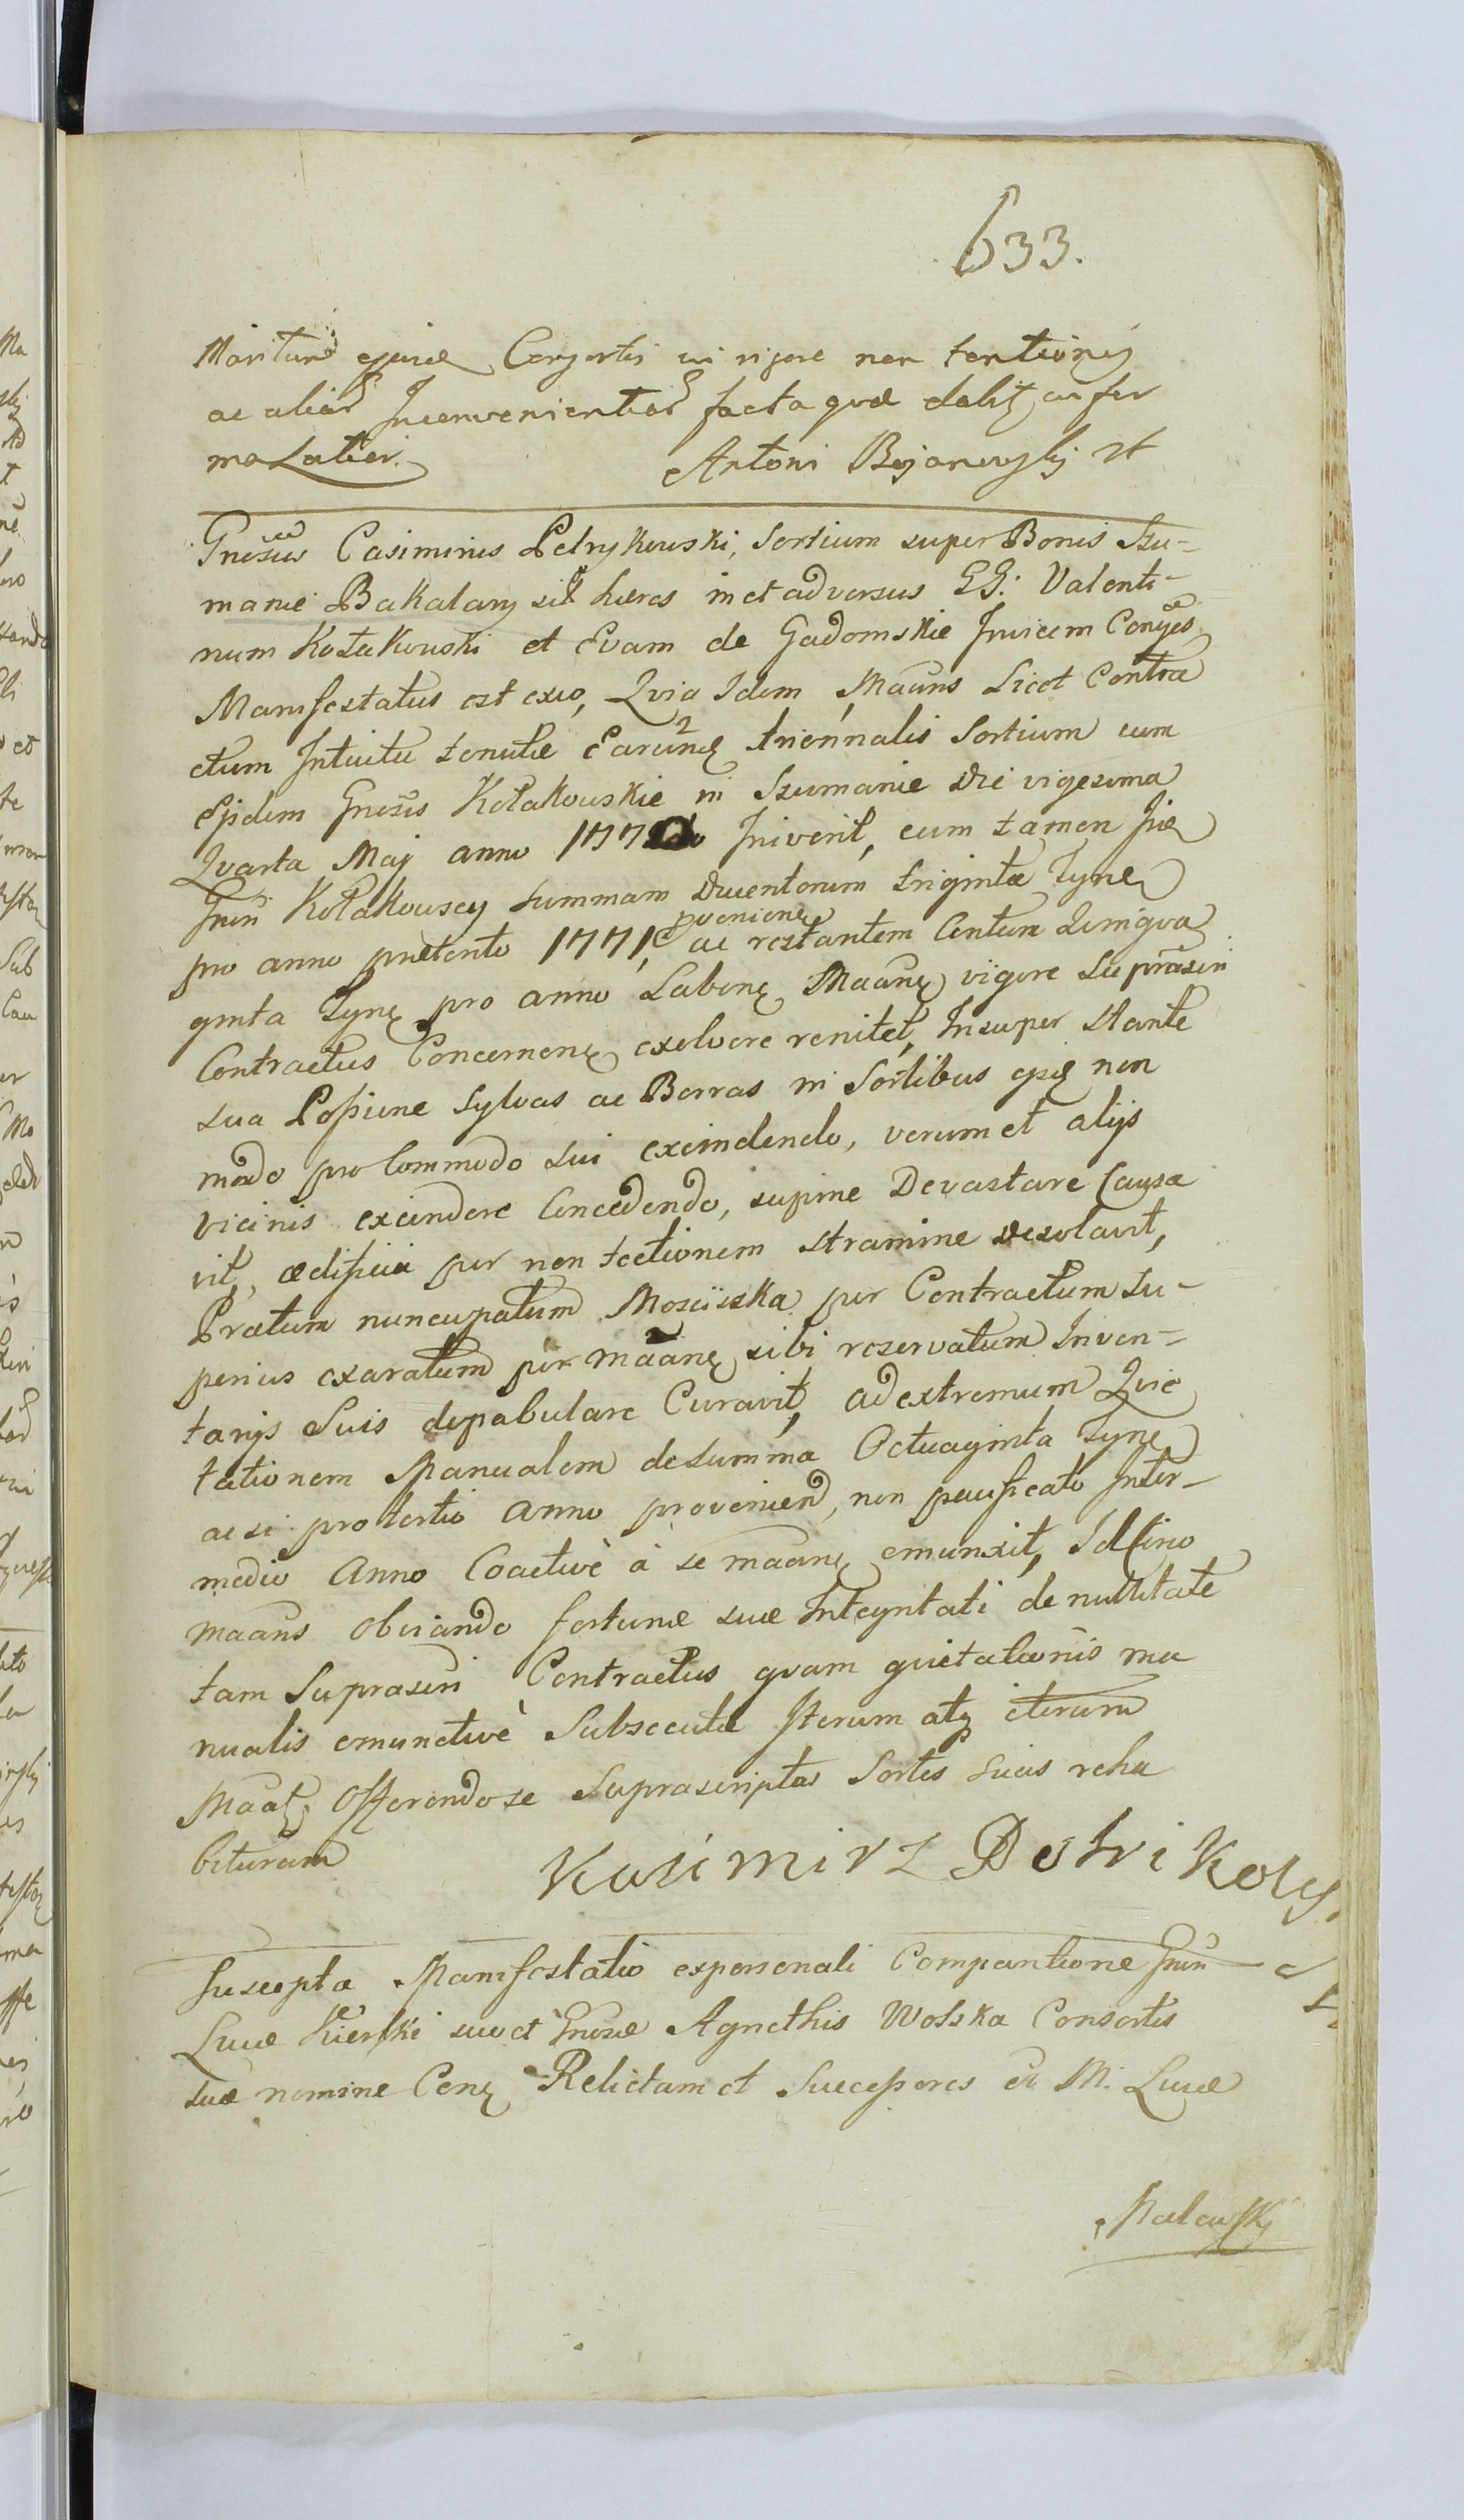 633.
Mariturũ ejusd Consortis vi rigore non tentionis
ac aliarũ Inconvenientiarũ facta quæ dabit in for
ma Latiori.
Antoni Bojanowskj
Gnosus Casimirus Petrykowski, Sortium super Bonis Szu-
manie Bakalarz sitt hæres in et adversus GG: Valenti-
num Kołakowski et Evam de Gadomskie Invicem Conjges
Manifestatus est exeo, Qvia Idem Maans Licet Contra
ctum Intuitu tenutæ Earund triennalis Sortium cum
Ejsdem Gnosis Kołakowskie in Szumanie Die vigesima
Qvarta Maj anno 177 Iniverit, cum tamen Jid
Gnri Kołakowscy summam Ducentorum triginta Tyne
pro anno prætento 1771, provenien ac restantem Centum Qvinqva
ginta Tyne pro anno Laben Maane vigore Suprascri
Contractus Concernene exolvere renitet, Insuper stante
sua Possione Sylvas ac Borras in Sortibus ejsd non
modo pro Commodo sui excindendo, verum et alijs
vicinis excindere Concedendo, supine Devastare Causa
vit, ædificia per non tectionem stramine desolavit,
Pratum nuncupatum Mosciiska per Contractum Su-
perius exaratum per Maane sibi reservatum Inven-
tarijs Suis depabulare Curavit, ad extremum Qvie
tationem Manualem de summa Octuaginta Tyne
ac si pro tertio Anno provenien, non pacificato Inter-
medio Anno Coactivè à se maane emunxit, Id Circo
Maans obviando fortunæ suæ Integritati de nullitate
tam Suprascri Contractus qvam qvietationis ma
nualis emunctivè Subsecutæ Iterum atq iterum
Maat, Offerendo se Suprascriptas Sortes suas reha
biturum
Kasimirz Petrikows
Suscepta Manifestatio expersonali Comparitione Gnri
Lucæ Kierski suo et Gnosæ Agnethis Wolska Consortis
suæ nomine Cen Relictam et Successores M. Lucæ
Malawski